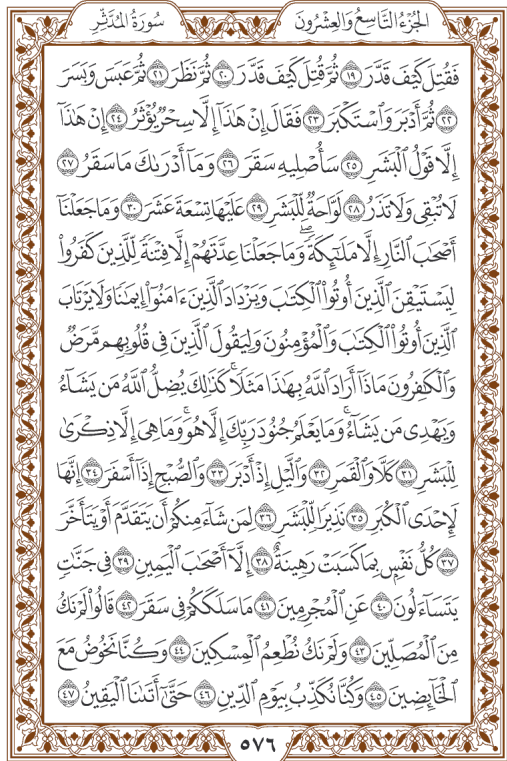 سُورَةُ المُدَّثِّرِ الجُزْءُ التَّاسِعُ وَالعِشْرُونَ
فَقُتِلَ كَيْفَ قَدَّرَ ١٩ ثُمَّ قُتِلَ كَيْفَ قَدَّرَ ٢٠ ثُمَّ نَظَرَ ٢١ ثُمَّ عَبَسَ وَبَسَرَ
٢٢ ثُمَّ أَدْبَرَ وَٱسْتَكْبَرَ ٢٣ فَقَالَ إِنْ هَٰذَآ إِلَّا سِحْرٌ يُؤْثَرُ ٢٤ إِنْ هَٰذَآ
إِلَّا قَوْلُ ٱلْبَشَرِ ٢٥ سَأُصْلِيهِ سَقَرَ ٢٦ وَمَآ أَدْرَىٰكَ مَا سَقَرُ ٢٧
لَا تُبْقِى وَلَا تَذَرُ ٢٨ لَوَّاحَةٌ لِّلْبَشَرِ ٢٩ عَلَيْهَا تِسْعَةَ عَشَرَ ٣٠ وَمَا جَعَلْنَآ
أَصْحَٰبَ ٱلنَّارِ إِلَّا مَلَٰٓئِكَةً ۙ وَمَا جَعَلْنَا عِدَّتَهُمْ إِلَّا فِتْنَةً لِّلَّذِينَ كَفَرُوا۟
لِيَسْتَيْقِنَ ٱلَّذِينَ أُوتُوا۟ ٱلْكِتَٰبَ وَيَزْدَادَ ٱلَّذِينَ ءَامَنُوٓا۟ إِيمَٰنًا وَلَا يَرْتَابَ
ٱلَّذِينَ أُوتُوا۟ ٱلْكِتَٰبَ وَٱلْمُؤْمِنُونَ وَلِيَقُولَ ٱلَّذِينَ فِى قُلُوبِهِم مَّرَضٌ
وَٱلْكَٰفِرُونَ مَاذَآ أَرَادَ ٱللَّهُ بِهَٰذَا مَثَلًا ۚ كَذَٰلِكَ يُضِلُّ ٱللَّهُ مَن يَشَآءُ
وَيَهْدِى مَن يَشَآءُ ۚ وَمَا يَعْلَمُ جُنُودَ رَبِّكَ إِلَّا هُوَ ۚ وَمَا هِىَ إِلَّا ذِكْرَىٰ
لِلْبَشَرِ ٣١ كَلَّا وَٱلْقَمَرِ ٣٢ وَٱلَّيْلِ إِذْ أَدْبَرَ ٣٣ وَٱلصُّبْحِ إِذَآ أَسْفَرَ ٣٤ إِنَّهَا
لَإِحْدَى ٱلْكُبَرِ ٣٥ نَذِيرًا لِّلْبَشَرِ ٣٦ لِمَن شَآءَ مِنكُمْ أَن يَتَقَدَّمَ أَوْ يَتَأَخَّرَ
٣٧ كُلُّ نَفْسٍۭ بِمَا كَسَبَتْ رَهِينَةٌ ٣٨ إِلَّآ أَصْحَٰبَ ٱلْيَمِينِ ٣٩ فِى جَنَّٰتٍ
يَتَسَآءَلُونَ ٤٠ عَنِ ٱلْمُجْرِمِينَ ٤١ مَا سَلَكَكُمْ فِى سَقَرَ ٤٢ قَالُوا۟ لَمْ نَكُ
مِنَ ٱلْمُصَلِّينَ ٤٣ وَلَمْ نَكُ نُطْعِمُ ٱلْمِسْكِينَ ٤٤ وَكُنَّا نَخُوضُ مَعَ
ٱلْخَآئِضِينَ ٤٥ وَكُنَّا نُكَذِّبُ بِيَوْمِ ٱلدِّينِ ٤٦ حَتَّىٰٓ أَتَىٰنَا ٱلْيَقِينُ ٤٧
٥٧٦